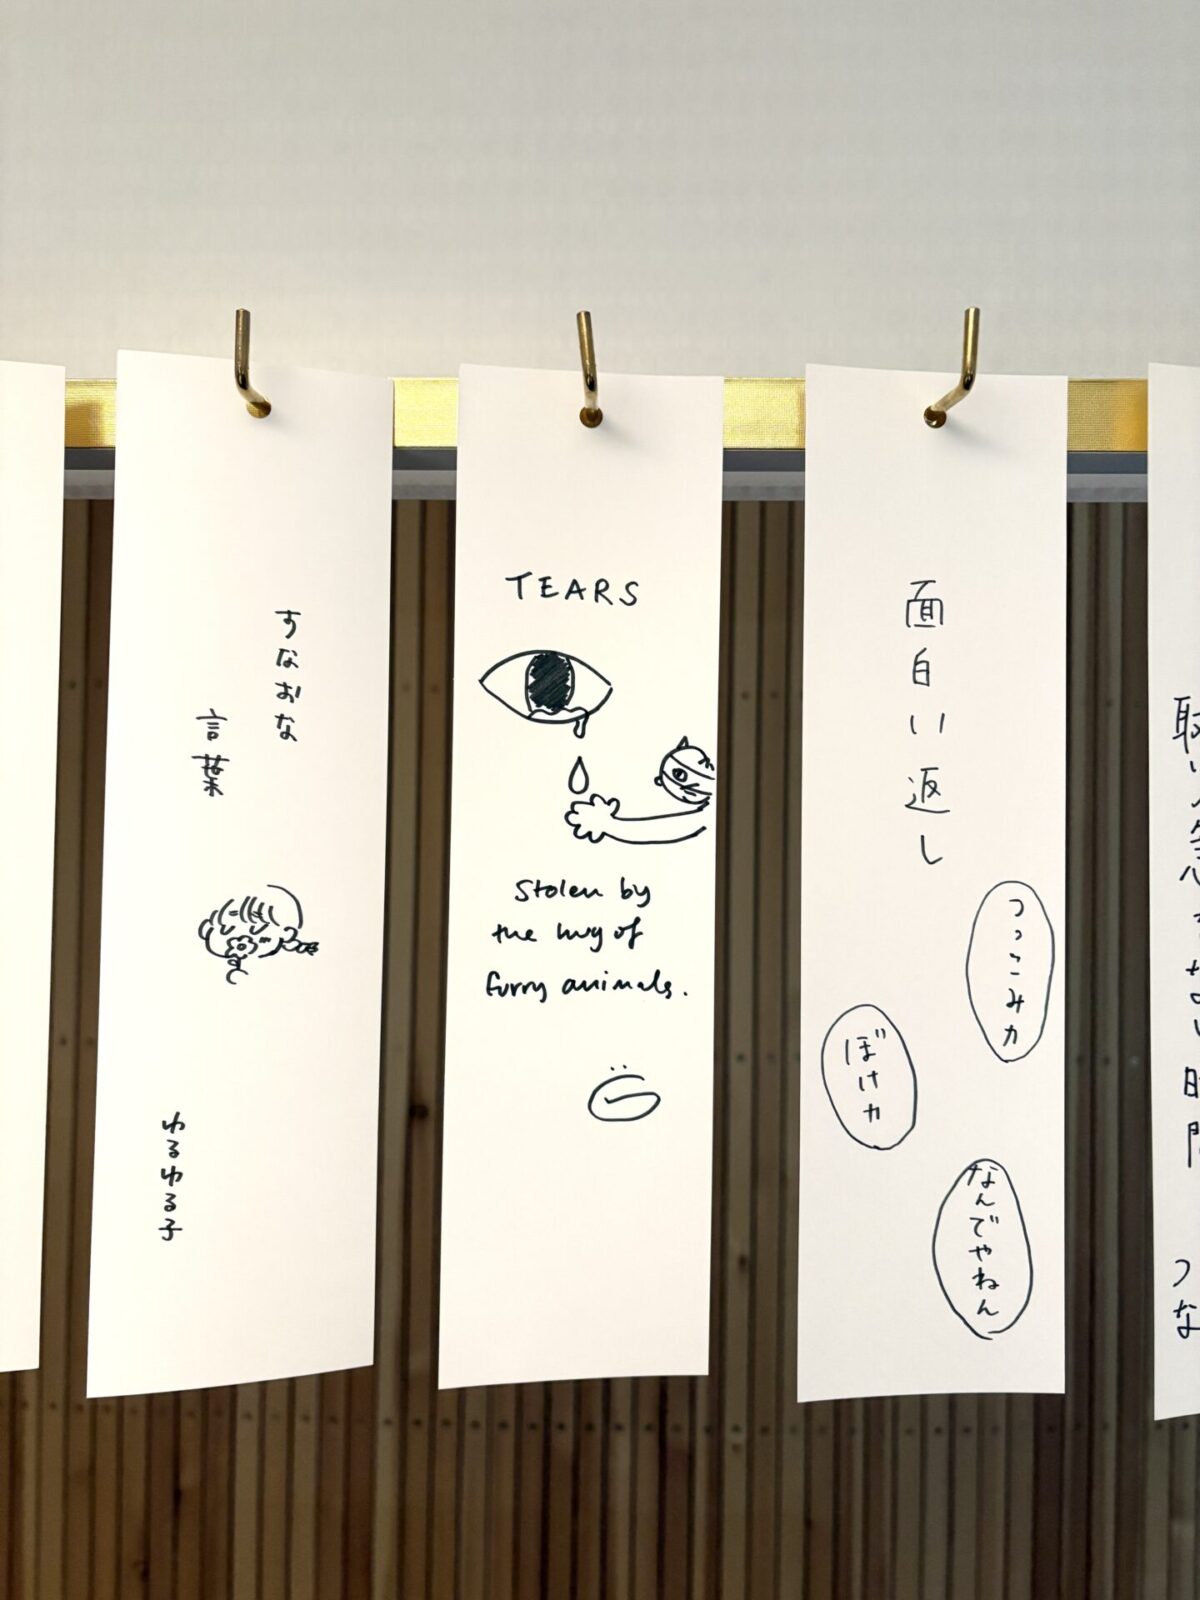 すなおな
言葉
ゆるゆる子
TEARS
Stolen by
the hug of
furry animals.
面白い返し
つっこみ力
ぼけ力
なんでやねん